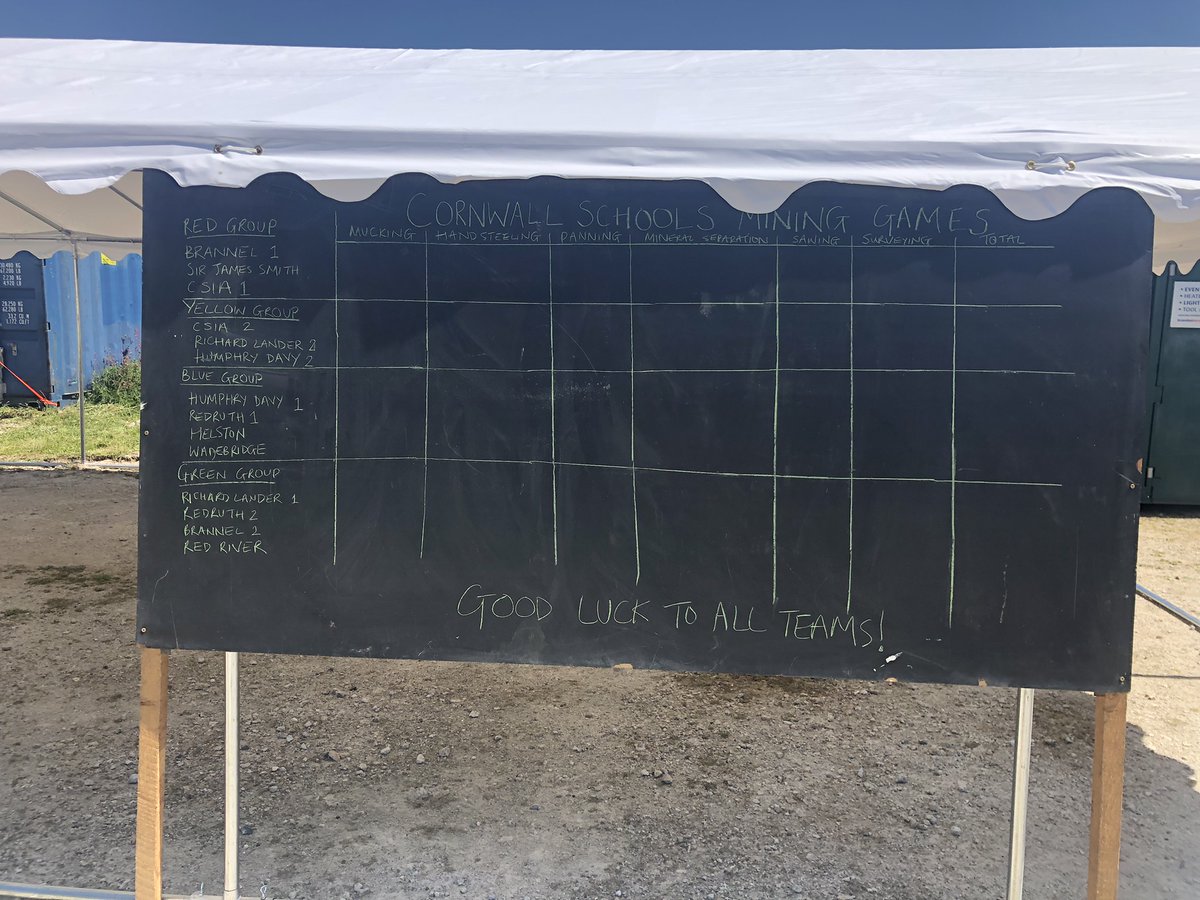 CORNWALL SCHOOLS MINING GAMES
RED GROUP
MUCKING HAND STEELING PANNING MINERAL SEPARATION SAWING SURVEYING TOTAL
BRANNEL 1
SIR JAMES SMITH
CSIA 1
YELLOW GROUP
CSIA 2
RICHARD LANDER 2
HUMPHRY DAVY 2
BLUE GROUP
HUMPHRY DAVY 1
REDRUTH 1
HELSTON
WADEBRIDGE
GREEN GROUP
RICHARD LANDER 1
REDRUTH 2
BRANNEL 2
RED RIVER
GOOD LUCK TO ALL TEAMS!